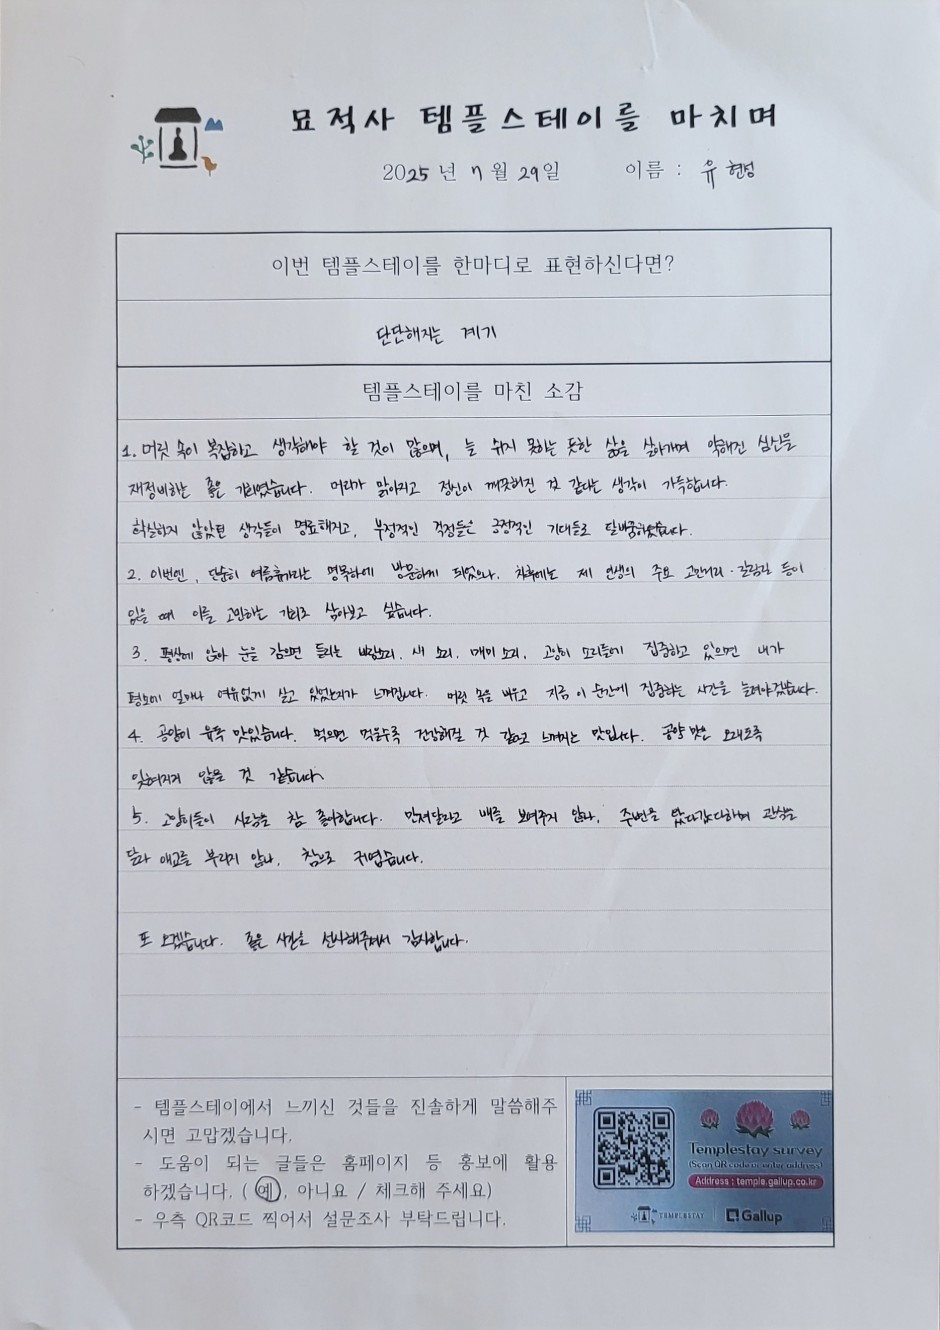 묘적사 템플스테이를 마치며
2025년 7월 29일 이름 : 유현성
이번 템플스테이를 한마디로 표현하신다면?
단단해지는 계기
템플스테이를 마친 소감
1. 머릿 속이 복잡하고 생각해야 할 것이 많으며, 늘 쉬지 못하는 듯한 삶을 살아가며 약해진 심신을
재정비하는 좋은 기회였습니다. 머리가 맑아지고 정신이 깨끗해진 것 같다는 생각이 가득합니다.
확실하지 않았던 생각들이 명료해지고, 부정적인 걱정들은 긍정적인 기대들로 탈바꿈하였습니다.
2. 이번엔, 단순히 여름휴가라는 명목하에 방문하게 되었으나, 차후에는 제 인생의 주요 고민거리·갈림길 등이
있을 때 이를 고민하는 기회로 삼아보고 싶습니다.
3. 평상에 앉아 눈을 감으면 들리는 바람소리, 새 소리, 매미 소리, 고양이 소리들에 집중하고 있으면 내가
평소에 얼마나 여유없게 살고 있었는지가 느껴집니다. 머릿 속을 비우고 지금 이 순간에 집중하는 시간을 늘려야겠습니다.
4. 공양이 무척 맛있습니다. 먹으면 먹을수록 건강해질 것 같다고 느껴지는 맛입니다. 공양 맛은 오래오래
잊혀지지 않을 것 같습니다.
5. 고양이들이 사람을 참 좋아합니다. 만져달라고 배를 보여주지 않나, 주변을 왔다갔다하며 관심을
달라 애교를 부리지 않나, 참으로 귀엽습니다.
또 오겠습니다. 좋은 시간을 선사해주셔서 감사합니다.
- 템플스테이에서 느끼신 것들을 진솔하게 말씀해주
시면 고맙겠습니다.
- 도움이 되는 글들은 홈페이지 등 홍보에 활용
하겠습니다. ( 예, 아니요 / 체크해 주세요)
- 우측 QR코드 찍어서 설문조사 부탁드립니다.
Templestay survey
(Scan QR code or enter address)
Address : temple.gallup.co.kr
TEMPLESTAY Gallup